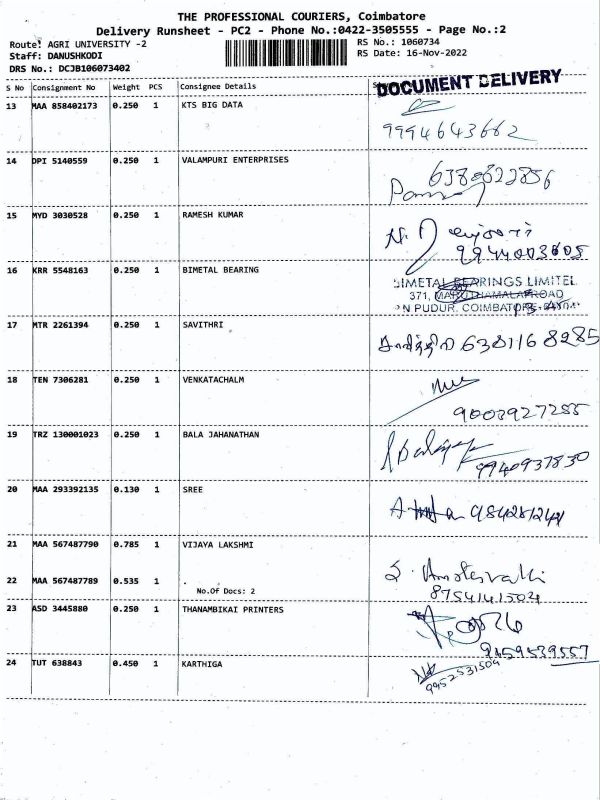 THE PROFESSIONAL COURIERS, Coimbatore
Delivery Runsheet - PC2 - Phone No.:0422-3505555 - Page No.:2
Route: AGRI UNIVERSITY -2
RS No.: 1060734
Staff: DANUSHKODI
RS Date: 16-Nov-2022
DRS No.: DCJB106073402
DOCUMENT DELIVERY
S No Consignment No Weight PCS Consignee Details
13 MAA 858402173 0.250 1 KTS BIG DATA
9994643662
14 DPI 5140559 0.250 1 VALAMPURI ENTERPRISES
6380822856
15 MYD 3030528 0.250 1 RAMESH KUMAR
9944003605
16 KRR 5548163 0.250 1 BIMETAL BEARING
BIMETAL BEARINGS LIMITED
371, MARUTHAMALAI ROAD
N PUDUR, COIMBATORE
17 MTR 2261394 0.250 1 SAVITHRI
6381168285
18 TEN 7306281 0.250 1 VENKATACHALM
9003927255
19 TRZ 130001023 0.250 1 BALA JAHANATHAN
9940937830
20 MAA 293392135 0.130 1 SREE
21 MAA 567487790 0.785 1 VIJAYA LAKSHMI
22 MAA 567487789 0.535 1 .
No.Of Docs: 2
23 ASD 3445880 0.250 1 THANAMBIKAI PRINTERS
24 TUT 638843 0.450 1 KARTHIGA
9952531504